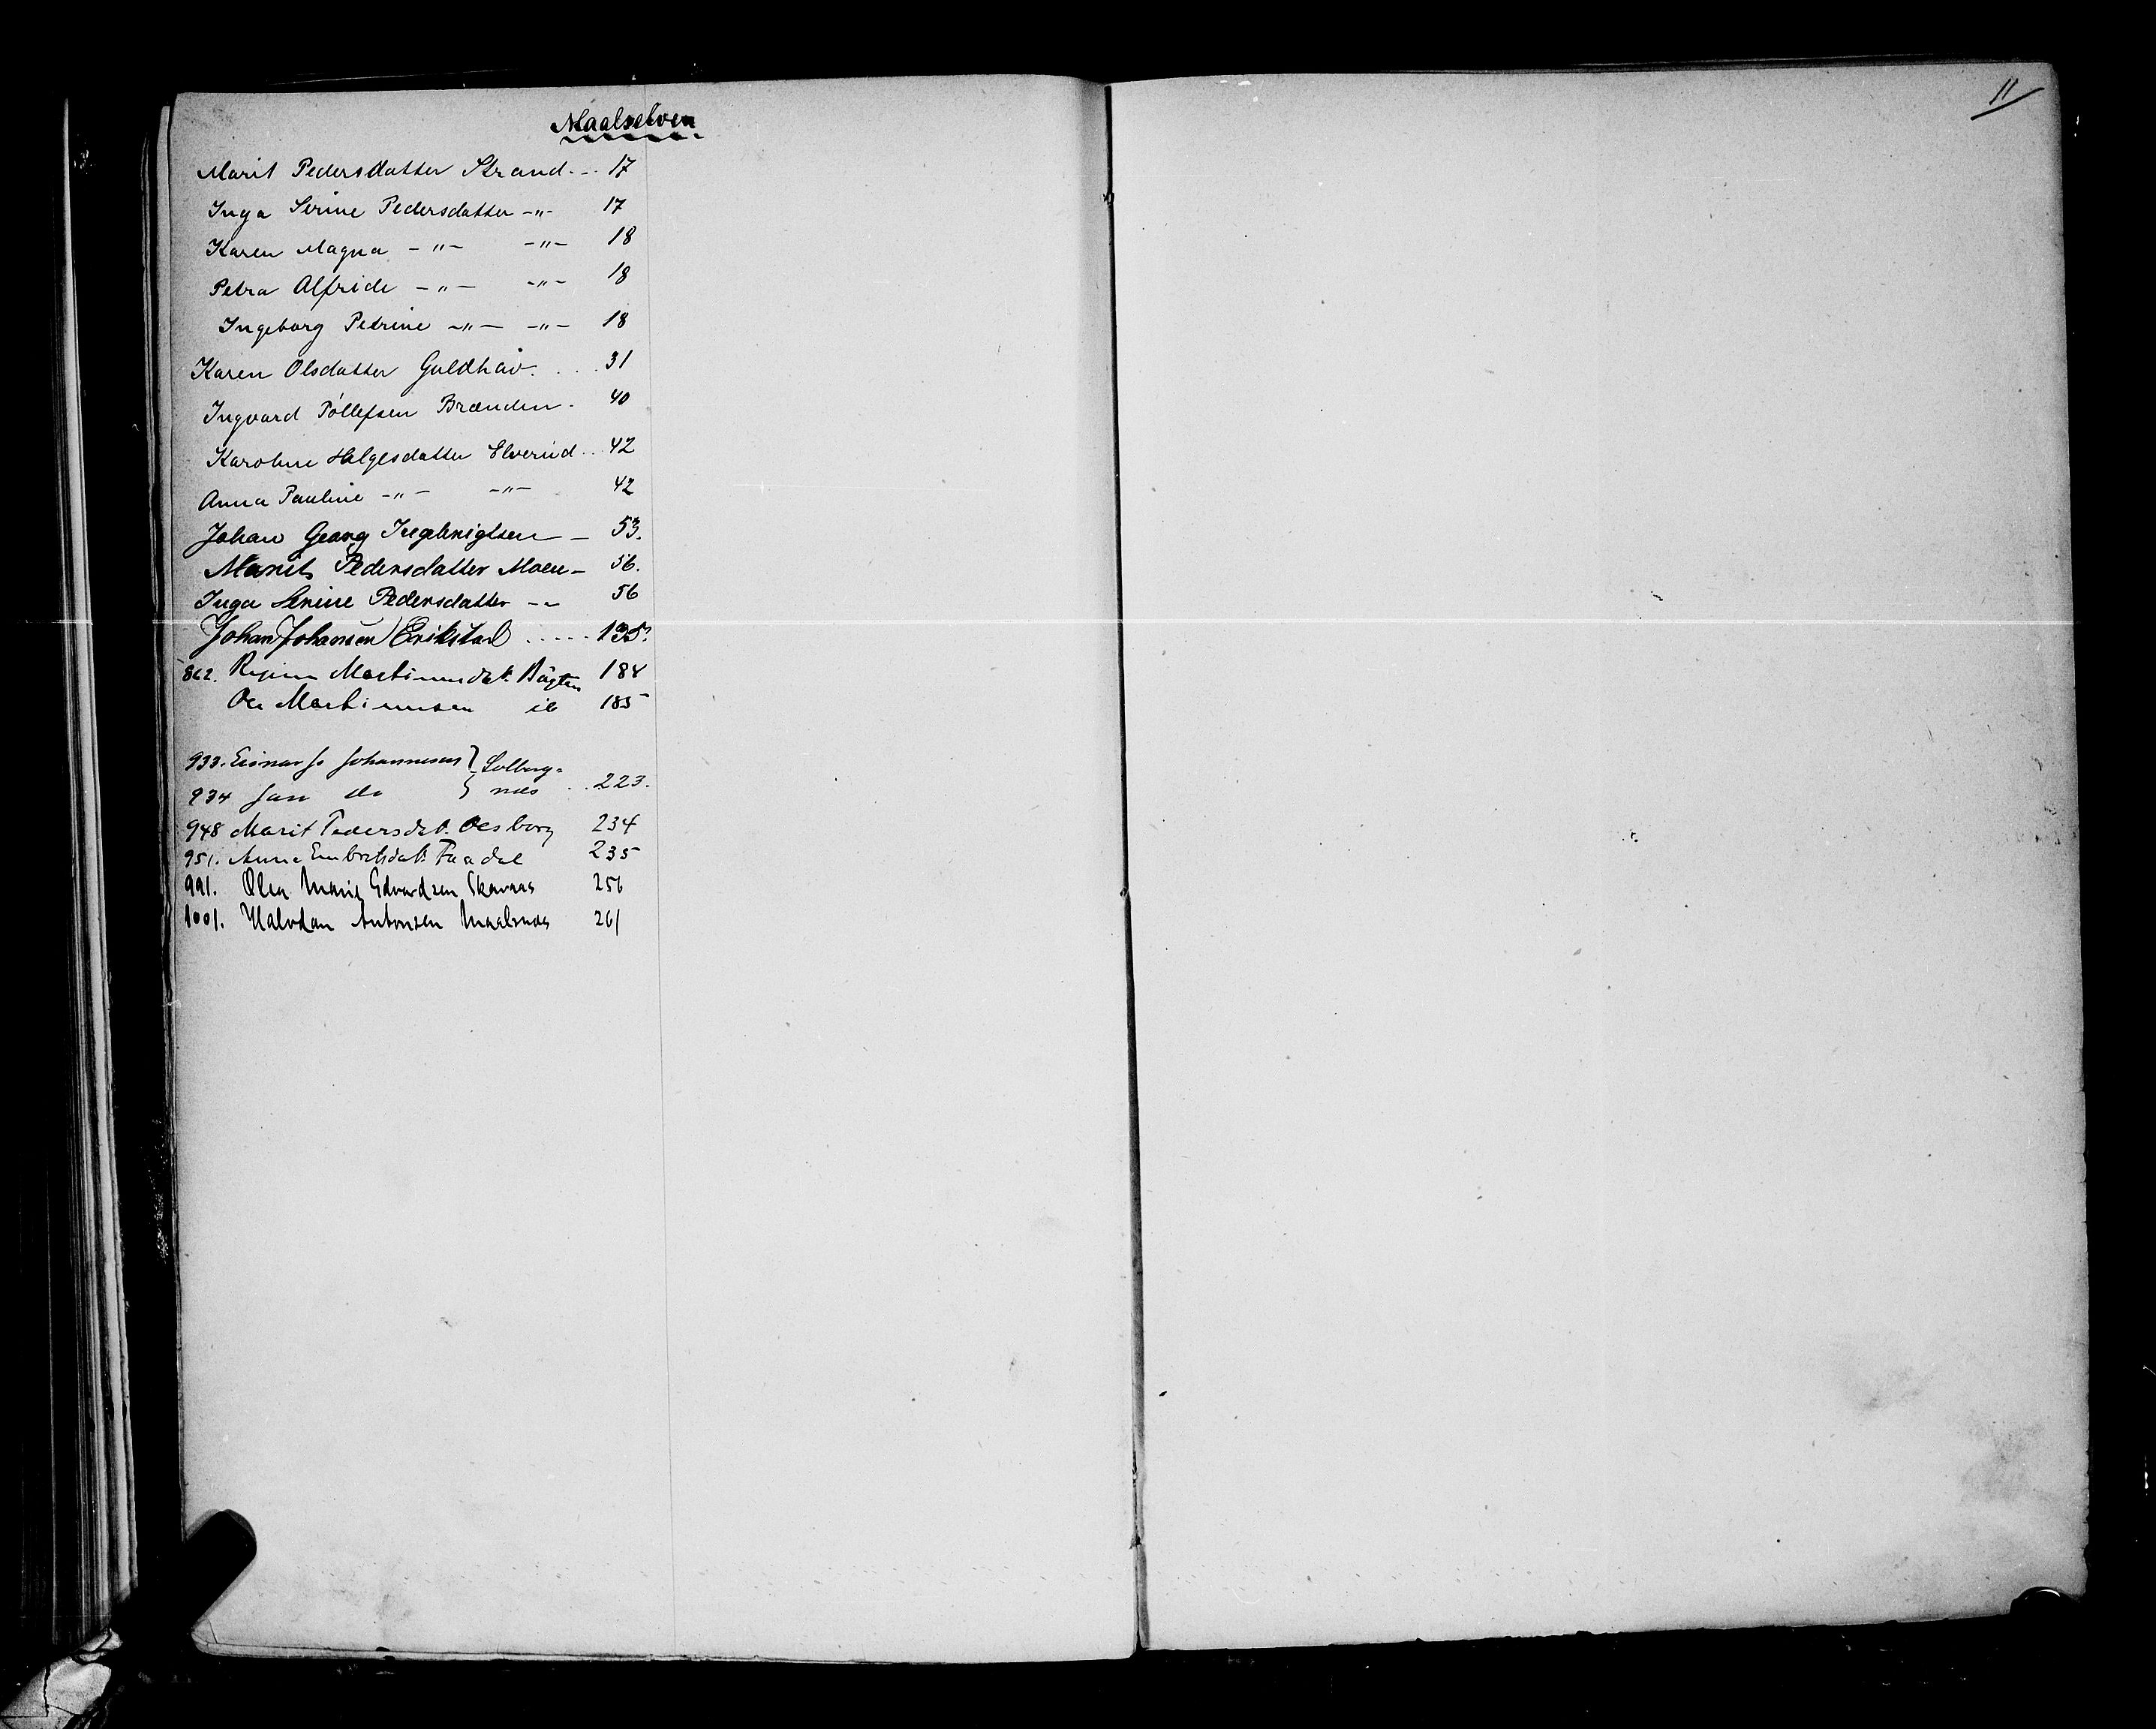 Maalselven
Marit Pedersdatter Strand. - . 17
Inga Serine Pedersdatter -"- 17
Karen Magna -"- -"- 18
Petra Alfride -"- -"- 18
Ingeborg Petrine -"- -"- 18
Karen Olsdatter Guldhav. . . . 31
Ingvard Tollefsen Brænden . 40
Karoline Helgesdatter Elverud . . 42
Anna Pauline -"- -"- 42
Johan Georg Ingebrigtsen - 53.
Marit Pedersdatter Moen - 56.
Inga Serine Pedersdatter - " 56
Johan Johansen Erikstad ..... 135.
862. Martinusdat. 184
Ole Martinusen ib 185
933. Einar Jo Johannesen } Solberg-
934 Jan do } næs . . 223.
948 Marit Pedersdat. Olsborg 234
951. Anne Embretsdat. 235
991. Olea Marie Edvardsen 256
1001. Halvdan Antonsen Maalsnes 261
11